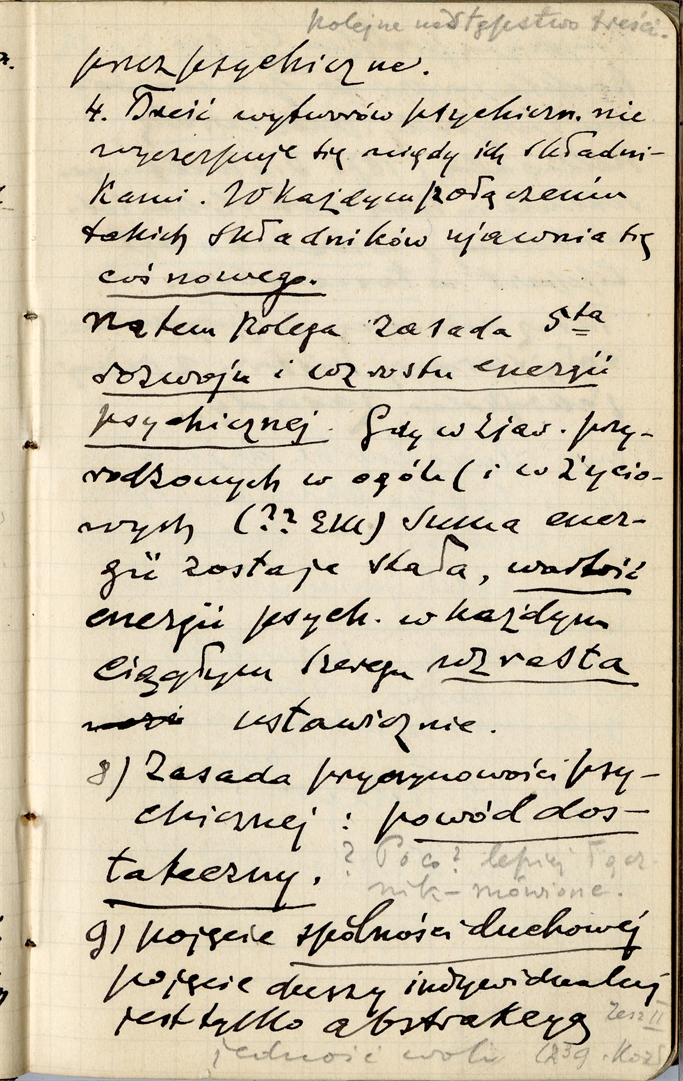 kolejne następstwo treści.
przez psychiczne.
4. Treść wytworów psychiczn. nie
wyczerpuje się między ich składni-
kami. W każdym połączeniu
takich składników ujawnia się
coś nowego.
Na tem polega zasada 5ta
rozwoju i wzrostu energii
psychicznej. Gdy w zjaw. przy-
rodzonych w ogóle (i w życio-
wych (?? EM) suma ener-
gii zostaje stała, wartość
energii psych. w każdym
ciągłym szeregu wzrasta
ustawicznie.
8) Zasada przyczynowości psy-
chicznej: powód dos-
tateczny.
? Po co? lepiej
nik-mówione.
9) pojęcie spólności duchowej
pojęcie duszy indywidualnej
jest tylko abstrakcyą
Zesz II
jedność woli (239. Koz